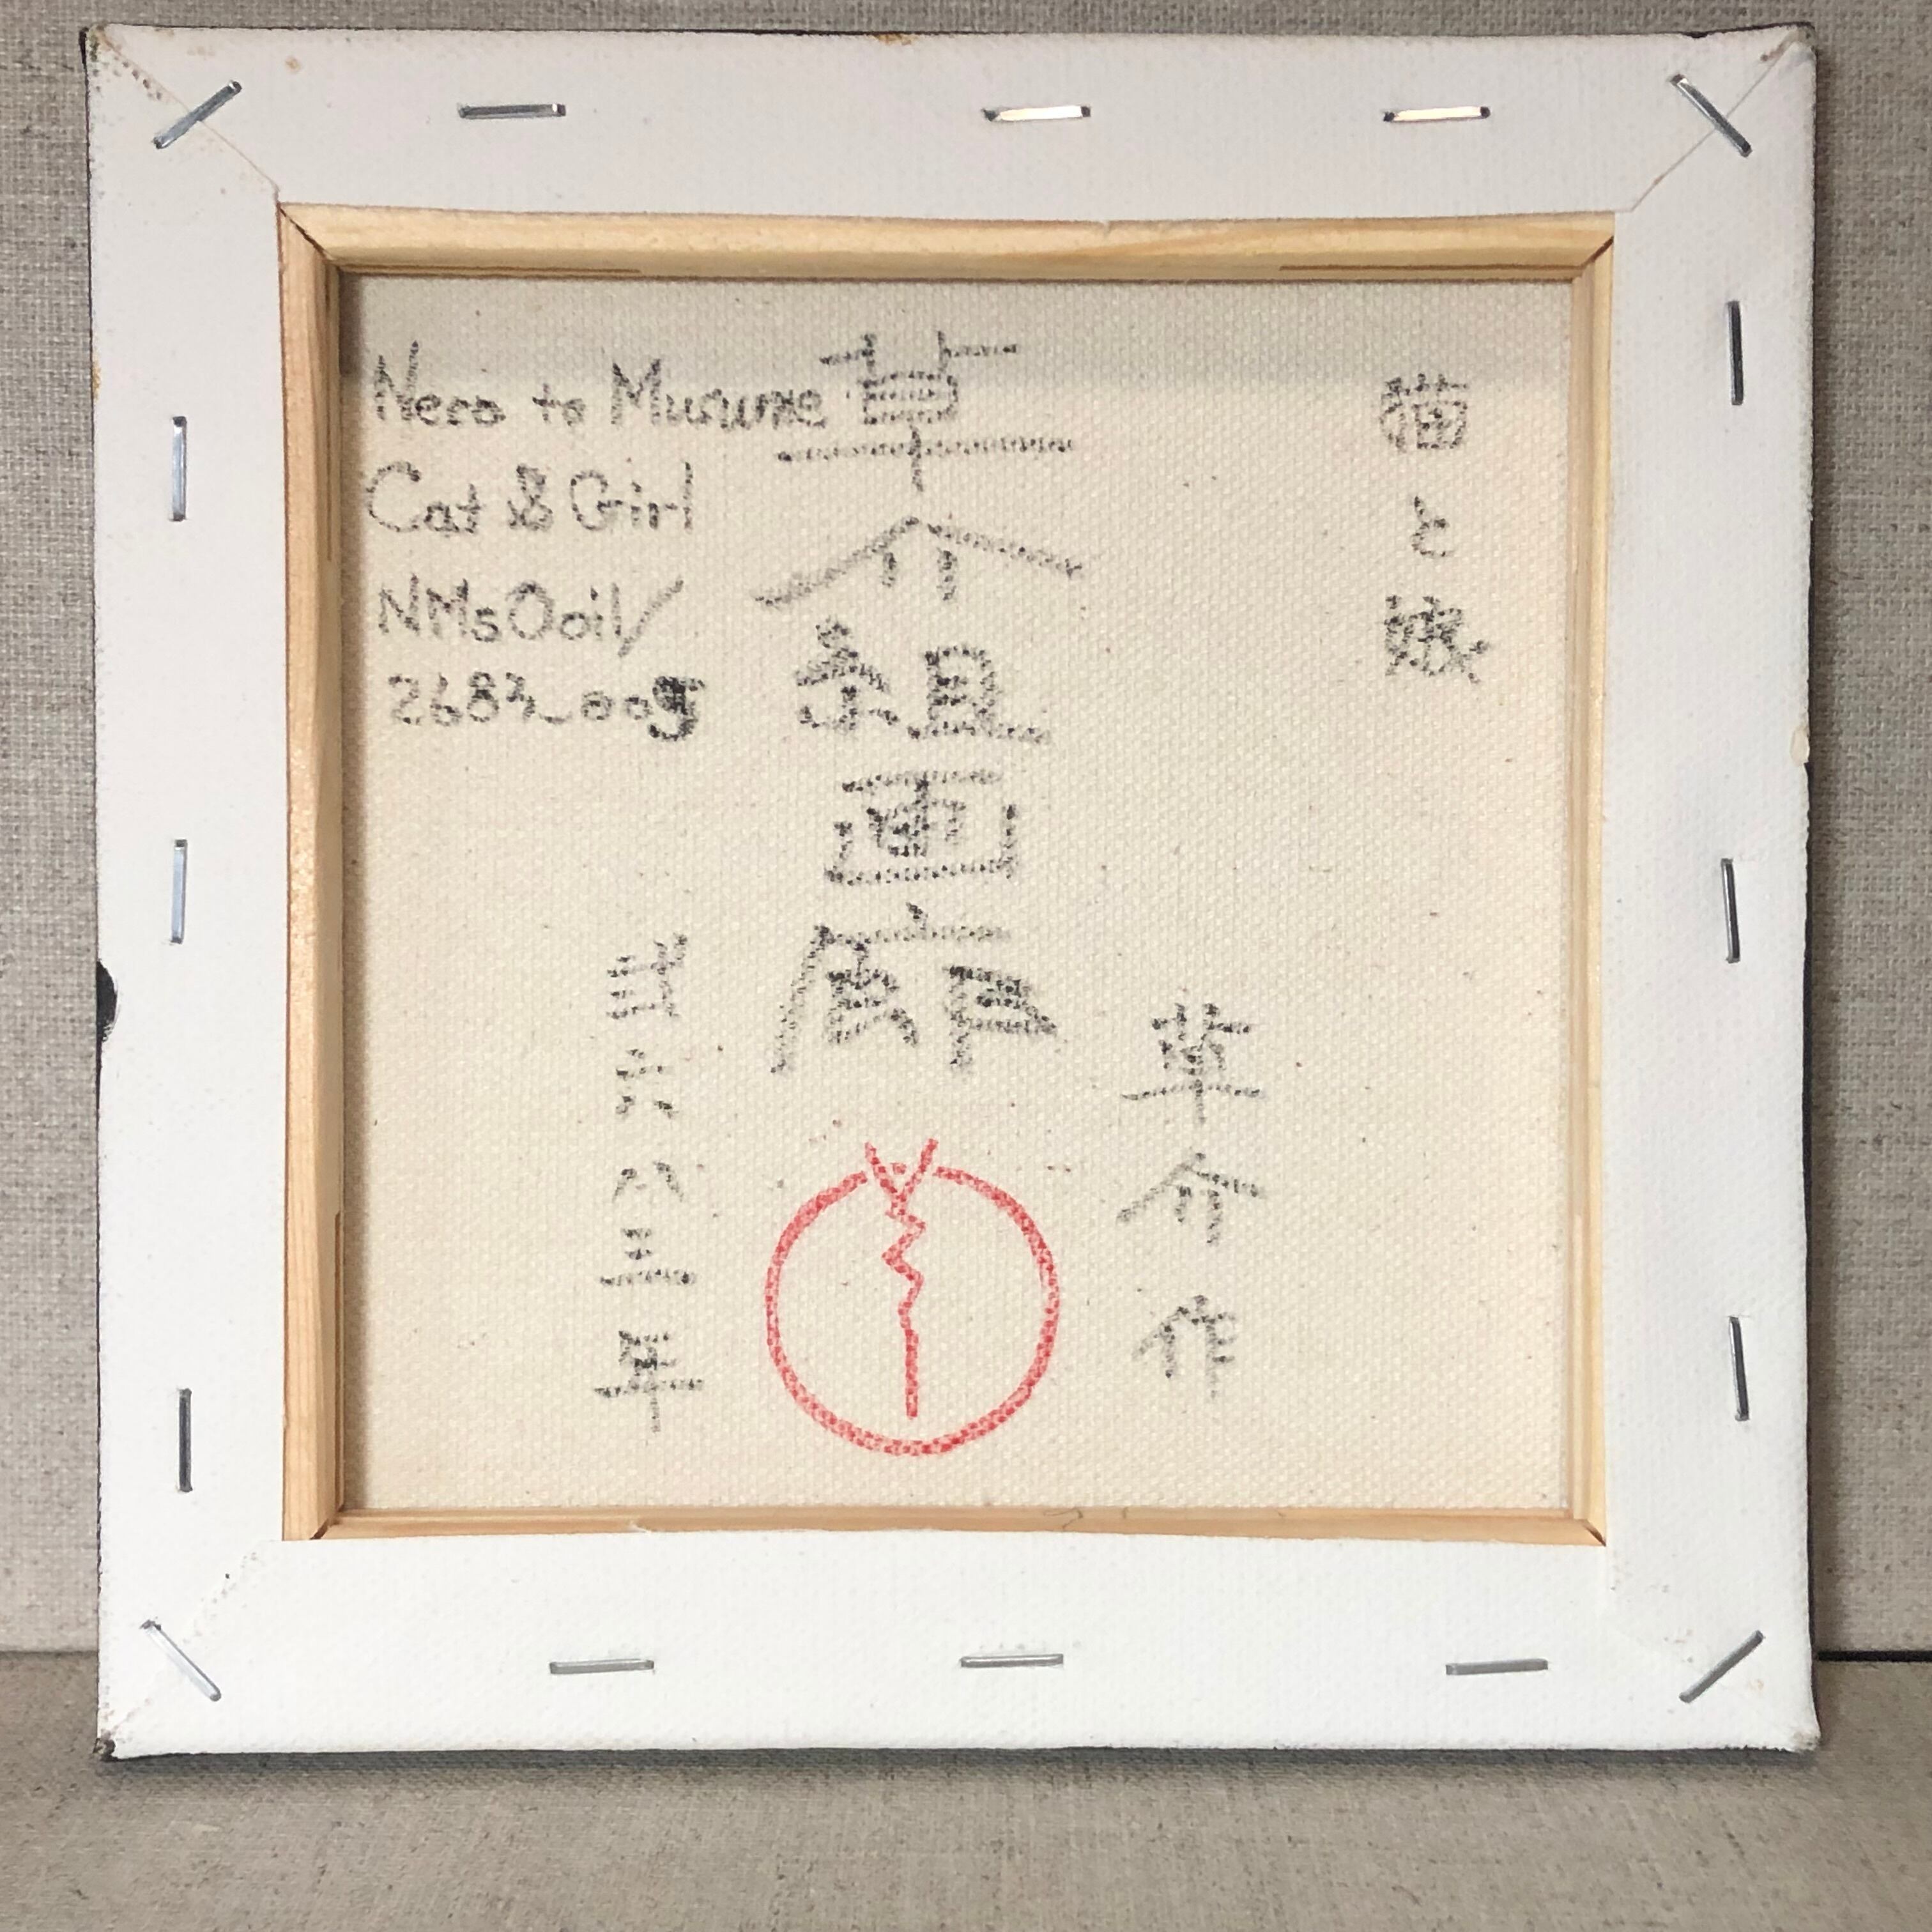 Neco to Musume
Cat & Girl
NMsOoil/
2683_009
猫と娘
草介組画廊
草介作
世六八三年